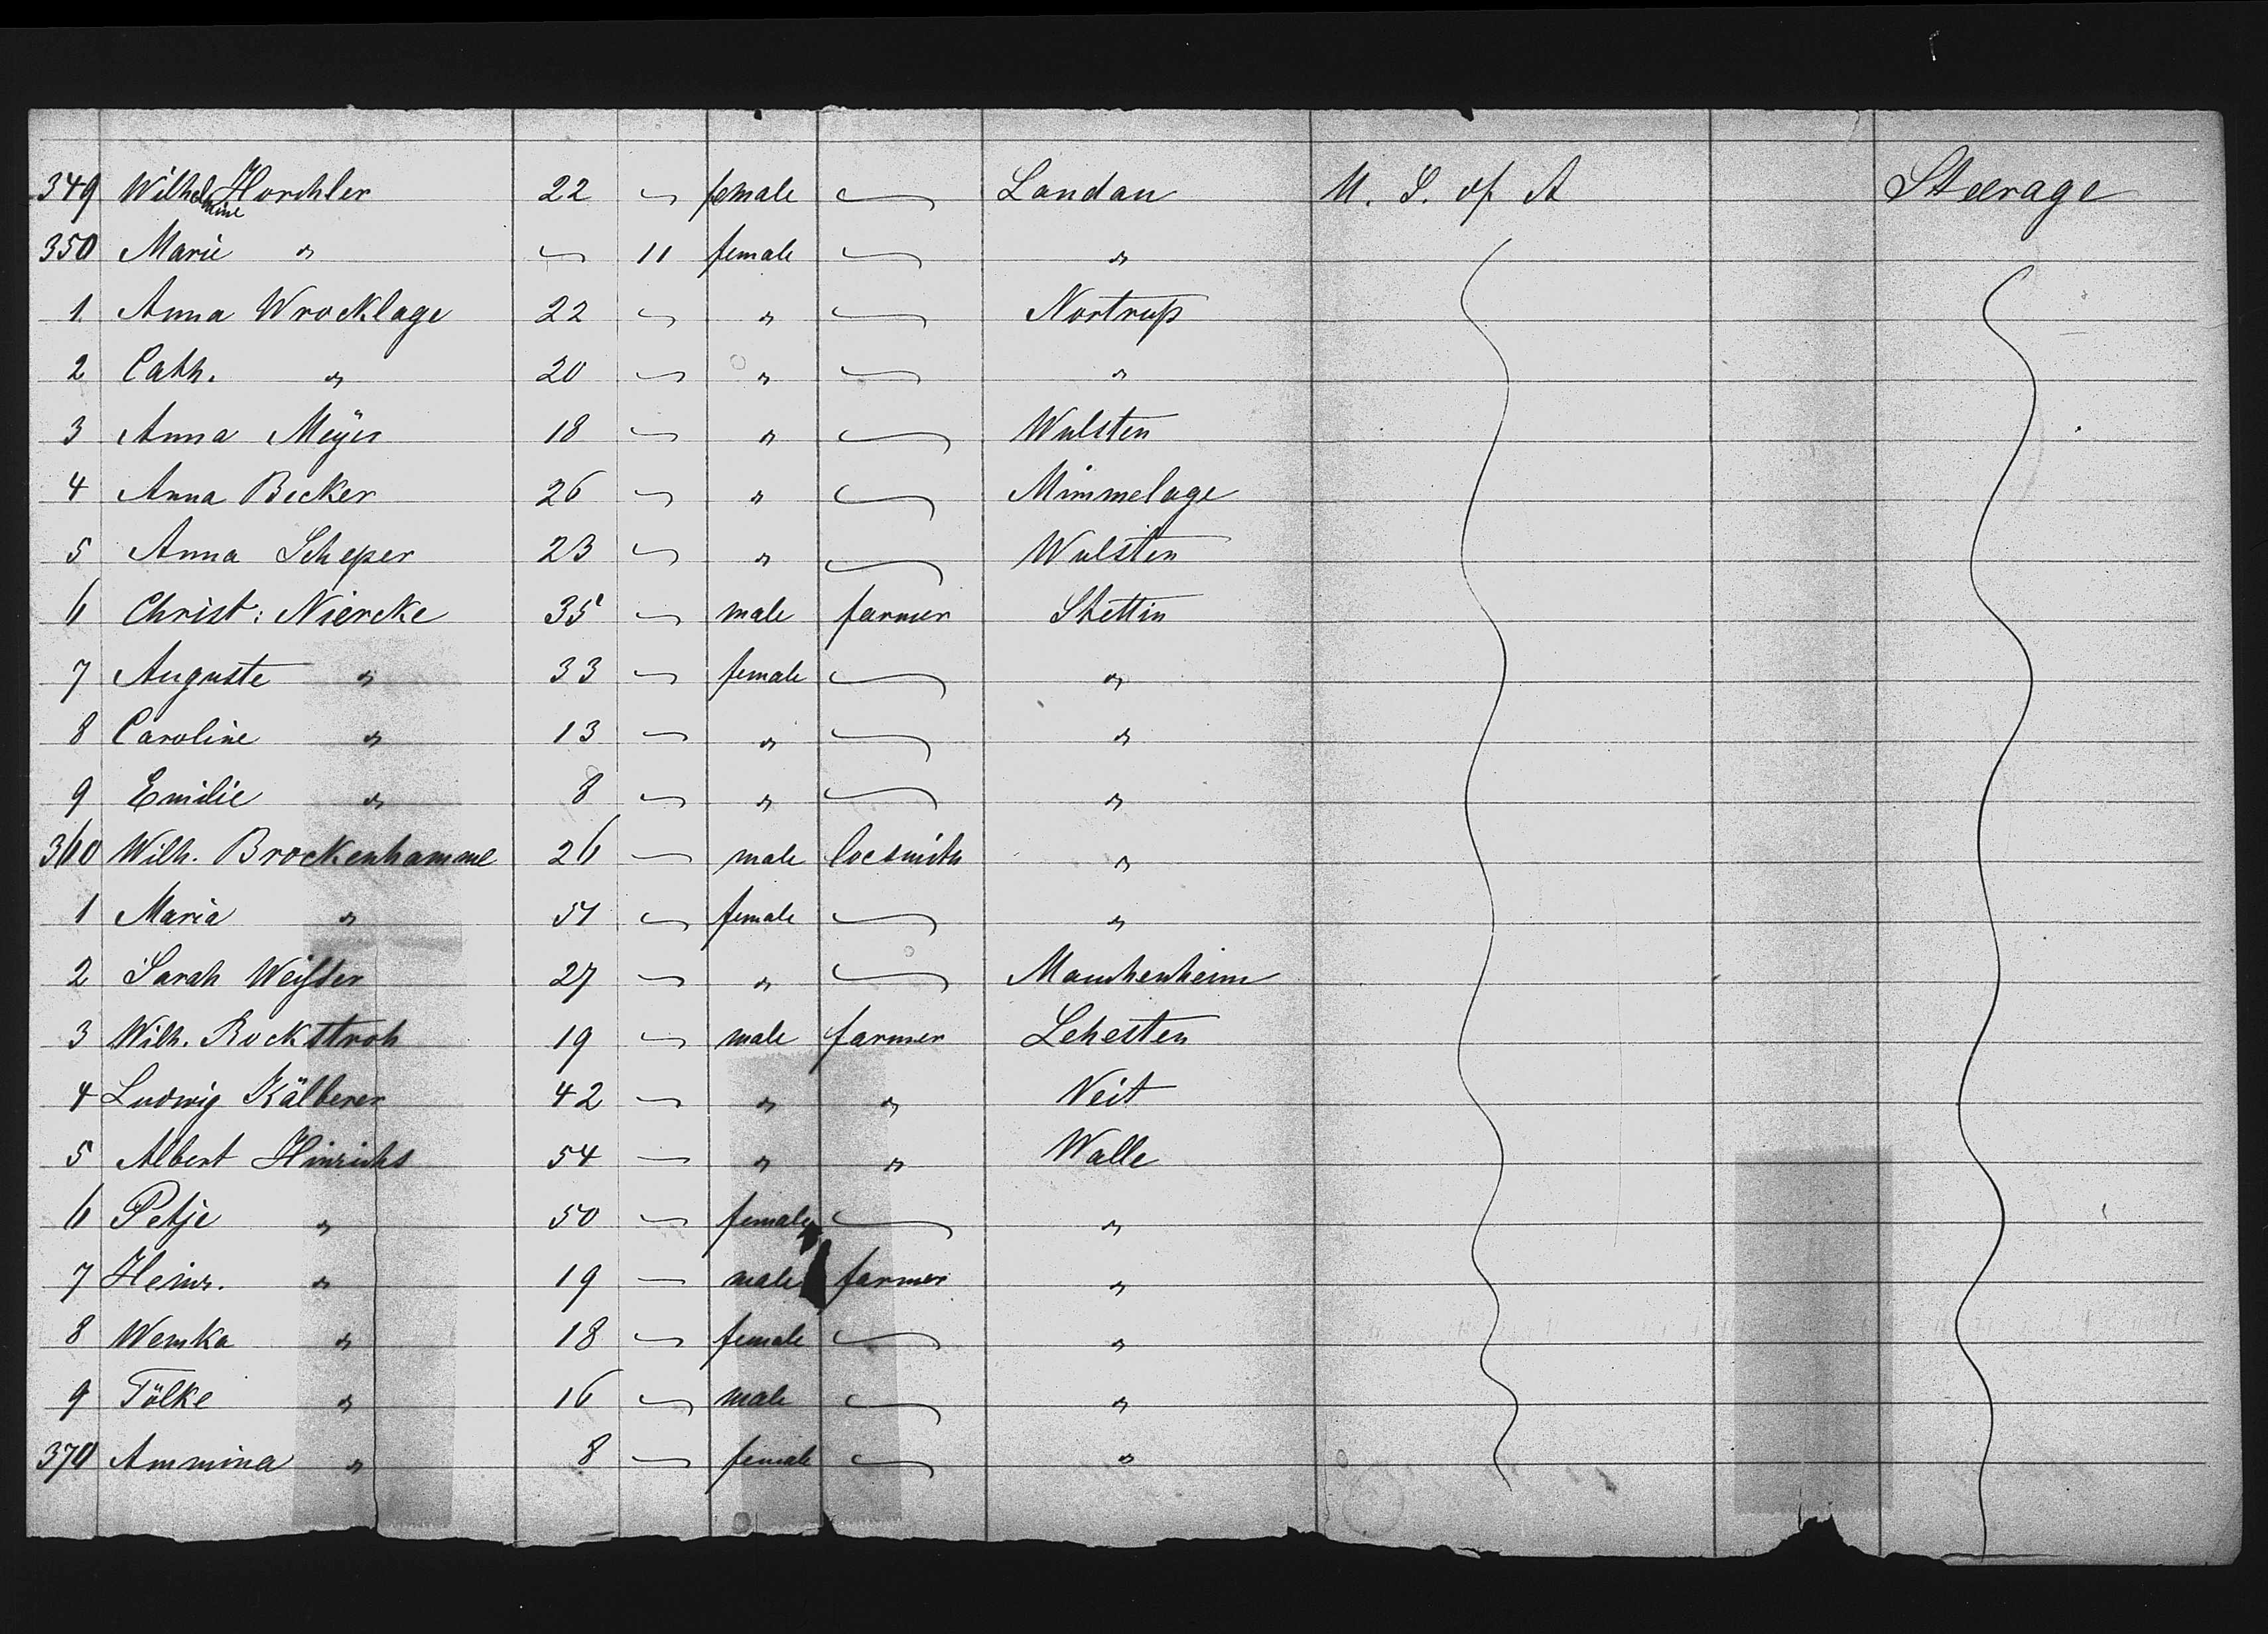 349 Wilhelmine Horchler 22 ~ female ~ Landau U. S. of A Steerage
350 Marie " ~ 11 female ~ "
1 Anna Wrocklage 22 ~ " ~ Nortrup
2 Cath. " 20 ~ " ~ "
3 Anna Meÿer 18 ~ " ~ Wulsten
4 Anna Becker 26 ~ " ~ Mimmelage
5 Anna Scheper 23 ~ " ~ Wulsten
6 Christ: Niercke 35 ~ male farmer Stettin
7 Auguste " 33 ~ female ~ "
8 Caroline " 13 ~ " ~ "
9 Emilie " 8 ~ " ~ "
360 Wilh. Brockenhamme 26 ~ male locsmith "
1 Maria " 51 ~ female ~ "
2 Sarah 27 ~ " ~ Mauchenheim
3 Wilh. Rockstroh 19 ~ male farmer Lehesten
4 Ludwig Kälberer 42 ~ " " Neit
5 Albert Hinrichs 54 ~ " " Walle
6 Petje " 50 ~ female ~ "
7 Heinr. " 19 ~ male farmer "
8 Wemka " 18 ~ female ~ "
9 Tölke " 16 ~ male ~ "
370 Ammina " 8 ~ female ~ "